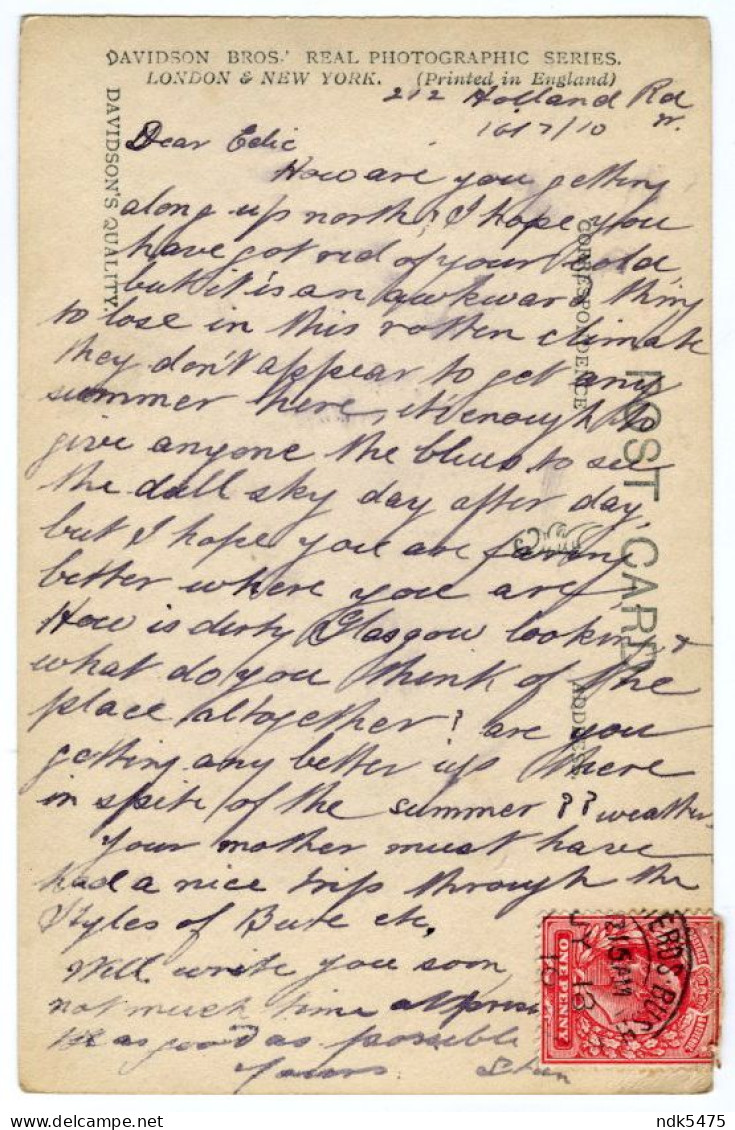 DAVIDSON BROS.' REAL PHOTOGRAPHIC SERIES.
LONDON & NEW YORK. (Printed in England)
DAVIDSON'S QUALITY.
POST CARD
CORRESPONDENCE
ADDRESS
212 Holland Rd
W.
Dear Edie
How are you getting
along up north, I hope you
have got rid of your cold,
but it is an awkward thing
to lose in this rotten climate
they don't appear to get any
summer here, it's enough to
give anyone the blues to see
the dull sky day after day,
but I hope you are faring
better where you are
How is dirty Glasgow looking &
what do you think of the
place altogether? are you
getting any better up there
in spite of the summer ?? weather
Your mother must have
had a nice trip through the
Kyles of Bute etc.
Will write you soon,
not much time at present
as good as possible
Yours
ONE PENNY
HERDS BUSH
12.15 AM
JY 13
10
ndk5475